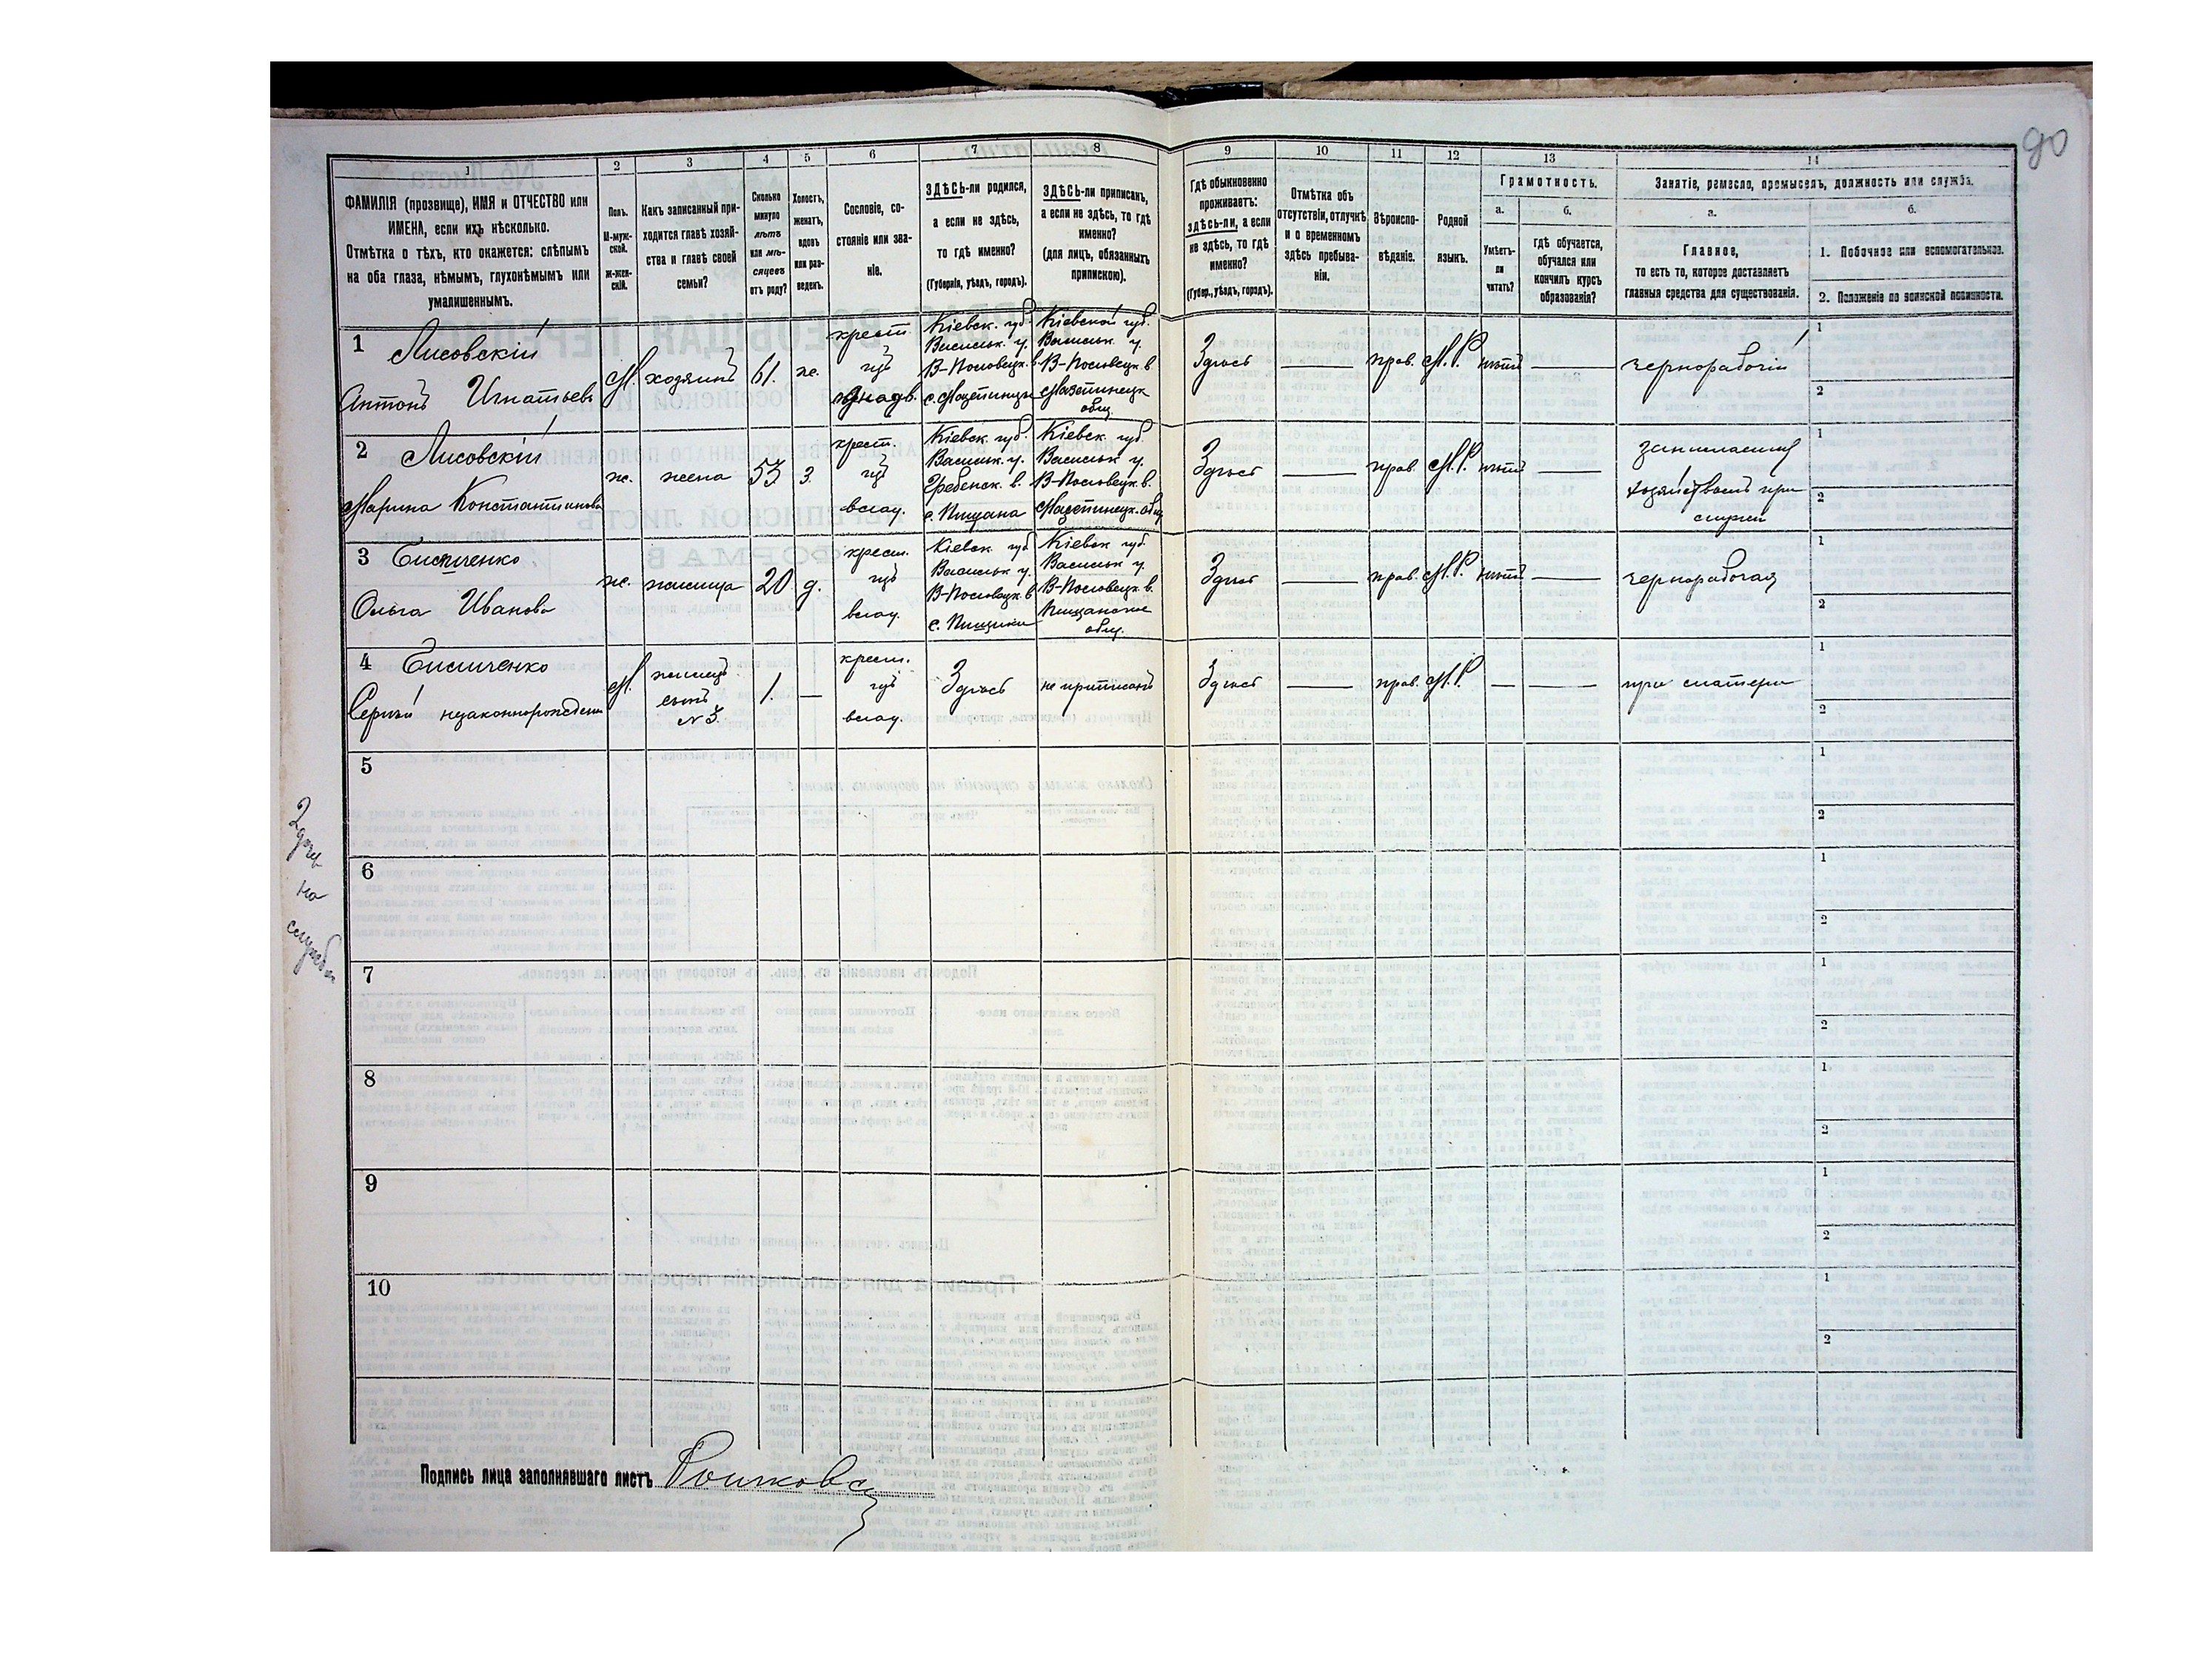 90
1
2
3
4
5
6
7
8
9
10
11
12
13
14
ФАМИЛІЯ (прозвище), ИМЯ и ОТЧЕСТВО или
ИМЕНА, если ихъ нѣсколько.
Отмѣтка о тѣхъ, кто окажется: слѣпымъ
на оба глаза, нѣмымъ, глухонѣмымъ или
умалишеннымъ.
Полъ.
М-муж-
ской.
ж-жен-
скій.
Какъ записанный при-
ходится главѣ хозяй-
ства и главѣ своей
семьи?
Сколько
минуло
лѣтъ
или мѣ-
сяцевъ
отъ роду?
Холостъ,
женатъ,
вдовъ
или раз-
веденъ.
Сословіе, со-
стояніе или зва-
ніе.
ЗДѢСЬ-ли родился,
а если не здѣсь,
то гдѣ именно?
(Губернія, уѣздъ, городъ).
ЗДѢСЬ-ли приписанъ,
а если не здѣсь, то гдѣ
именно?
(для лицъ, обязанныхъ
припискою).
Гдѣ обыкновенно
проживаетъ:
здѣсь-ли, а если
не здѣсь, то гдѣ
именно?
(Губер., уѣздъ, городъ).
Отмѣтка объ
отсутствіи, отлучкѣ
и о временномъ
здѣсь пребыва-
ніи.
Вѣроиспо-
вѣданіе.
Родной
языкъ.
Грамотность.
а.
Умѣетъ-
ли
читать?
б.
гдѣ обучается,
обучался или
кончилъ курсъ
образованія?
Занятіе, ремесло, промыселъ, должность или служба.
а.
Главное,
то есть то, которое доставляетъ
главныя средства для существованія.
б.
1. Побочное или вспомогательное.
2. Положеніе по воинской повинности.
1 Лисовскій
Антонъ Игнатьевъ
М.
хозяинъ
61.
ж.
крест.
изъ
Кіевск. губ.
Васильк. у.
Кіевской губ.
Васильк. у.
Здѣсь
прав.
М.Р.
нѣтъ
чернорабочій
1
2
2 Лисовскій
Марина Константинова
ж.
жена
53
з.
крест.
изъ
Кіевск. губ.
Васильк. у.
Гребенск. в.
Кіевск. губ.
Васильк. у.
Здѣсь
прав.
М.Р.
нѣтъ
хозяйствомъ при
1
2
3
Ольга Иванова
ж.
жилица
20
д.
крест.
изъ
Кіевск. губ.
Васильк. у.
Кіевск. губ.
Васильк. у.
общ.
Здѣсь
прав.
М.Р.
нѣтъ
чернорабочая
1
2
4
Сергѣй незаконнорожден
М.
жилицы
сынъ
№ 3.
1.
крест.
изъ
Здѣсь
не приписанъ
Здѣсь
прав.
М.Р.
при матери
1
2
5
1
2
6
1
2
7
1
2
8
1
2
9
1
2
10
1
2
на
службѣ
Подпись лица заполнявшаго листъ